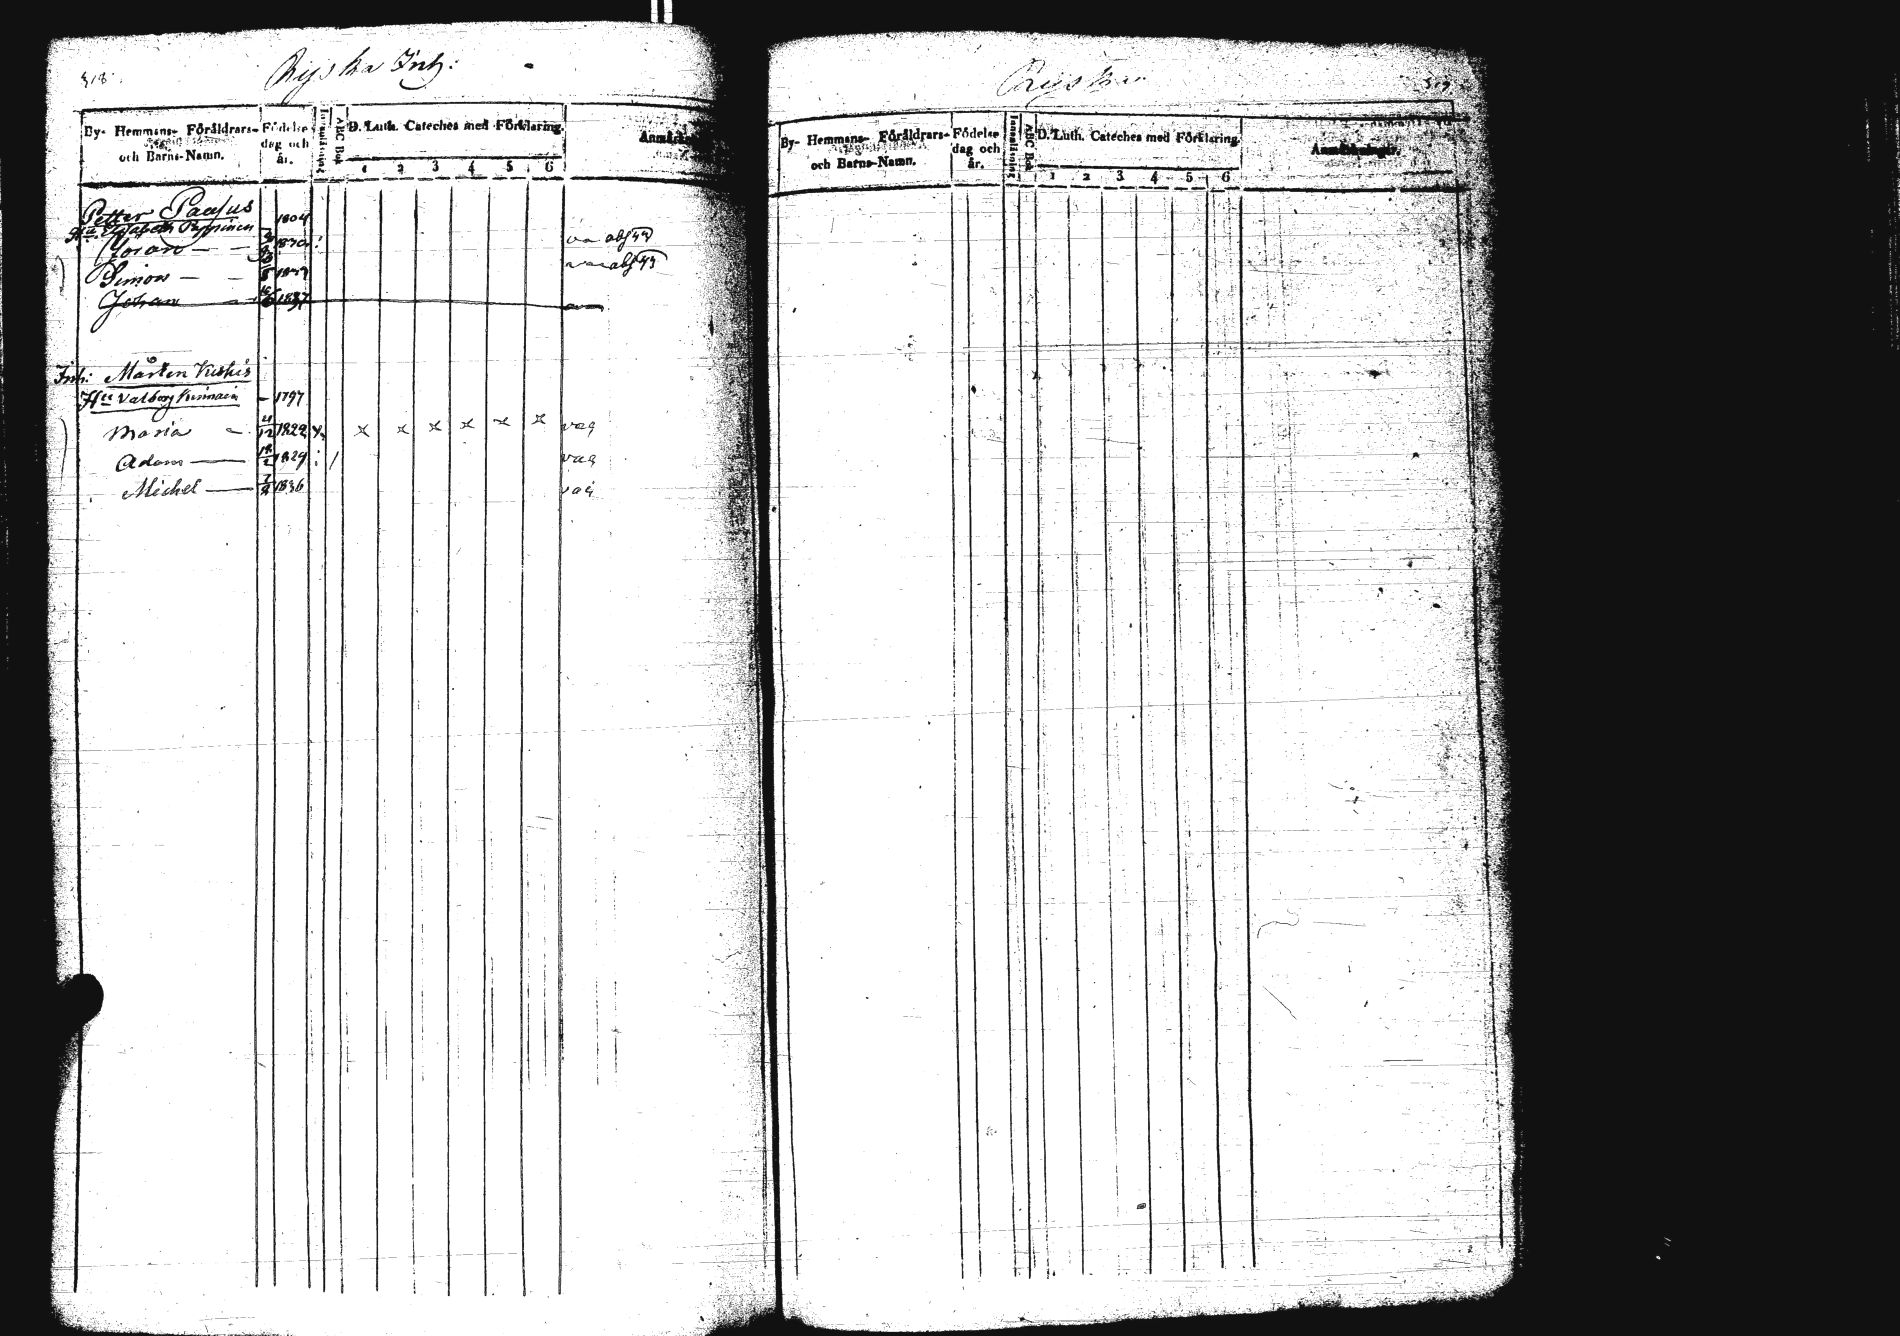 318.
Ryska Inh:
By- Hemmans- Föräldrars- och Barns-Namn. Födelse dag och år. Innanläsning ABC Bok D. Luth. Cateches med Förklaring. Anmärkn
1 2 3 4 5 6
Petter Paulus 1804
Hu Elisabeth Pippinen
Göran — — 1830
Simon — — 1833
Johan — 1837
Inh: Mårten Kiehus
Hu Valborg Kinnain — 1797
Maria — 12 1822 x x x x x x vag
Adam — 18/2 1829 vag
Michel — 1836 vag
Ryska
319
By- Hemmans- Föräldrars- och Barns-Namn. Födelse dag och år. Innanläsning ABC Bok D. Luth. Cateches med Förklaring. Anmärkningar.
1 2 3 4 5 6